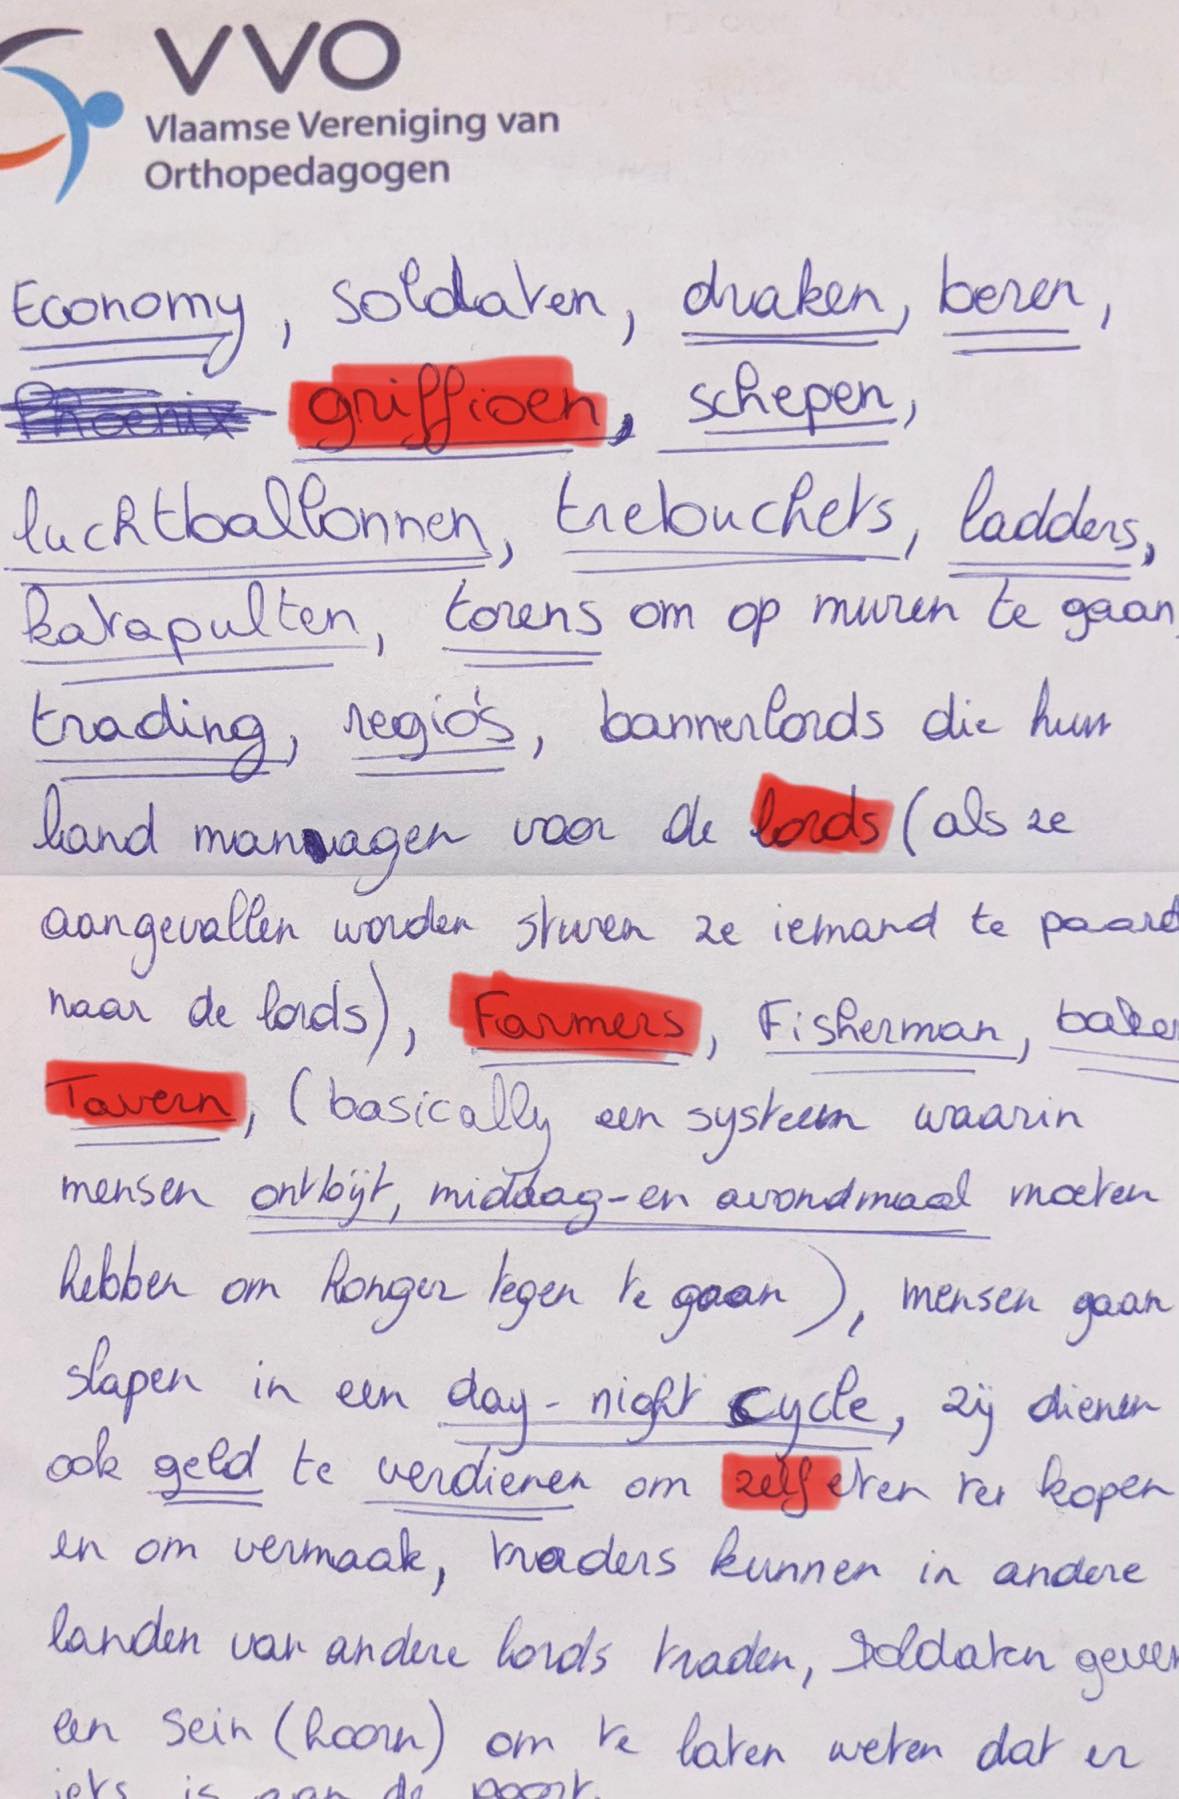 VVO
Vlaamse Vereniging van
Orthopedagogen
Economy, soldaten, draken, beren,
Phoenix griffioen, schepen,
luchtballonnen, trebuchets, ladders,
katapulten, torens om op muren te gaan,
trading, regio's, bannerlords die hun
land managen voor de lords (als ze
aangevallen worden sturen ze iemand te paard
naar de lords), Farmers, Fisherman, baker
Tavern, (basically een systeem waarin
mensen ontbijt, middag-en avondmaal moeten
hebben om honger tegen te gaan), mensen gaan
slapen in een day-night cycle, zij dienen
ook geld te verdienen om zelf eten te kopen
en om vermaak, traders kunnen in andere
landen van andere lords traden, Soldaten geven
een sein (hoorn) om te laten weten dat er
iets is aan de poort.